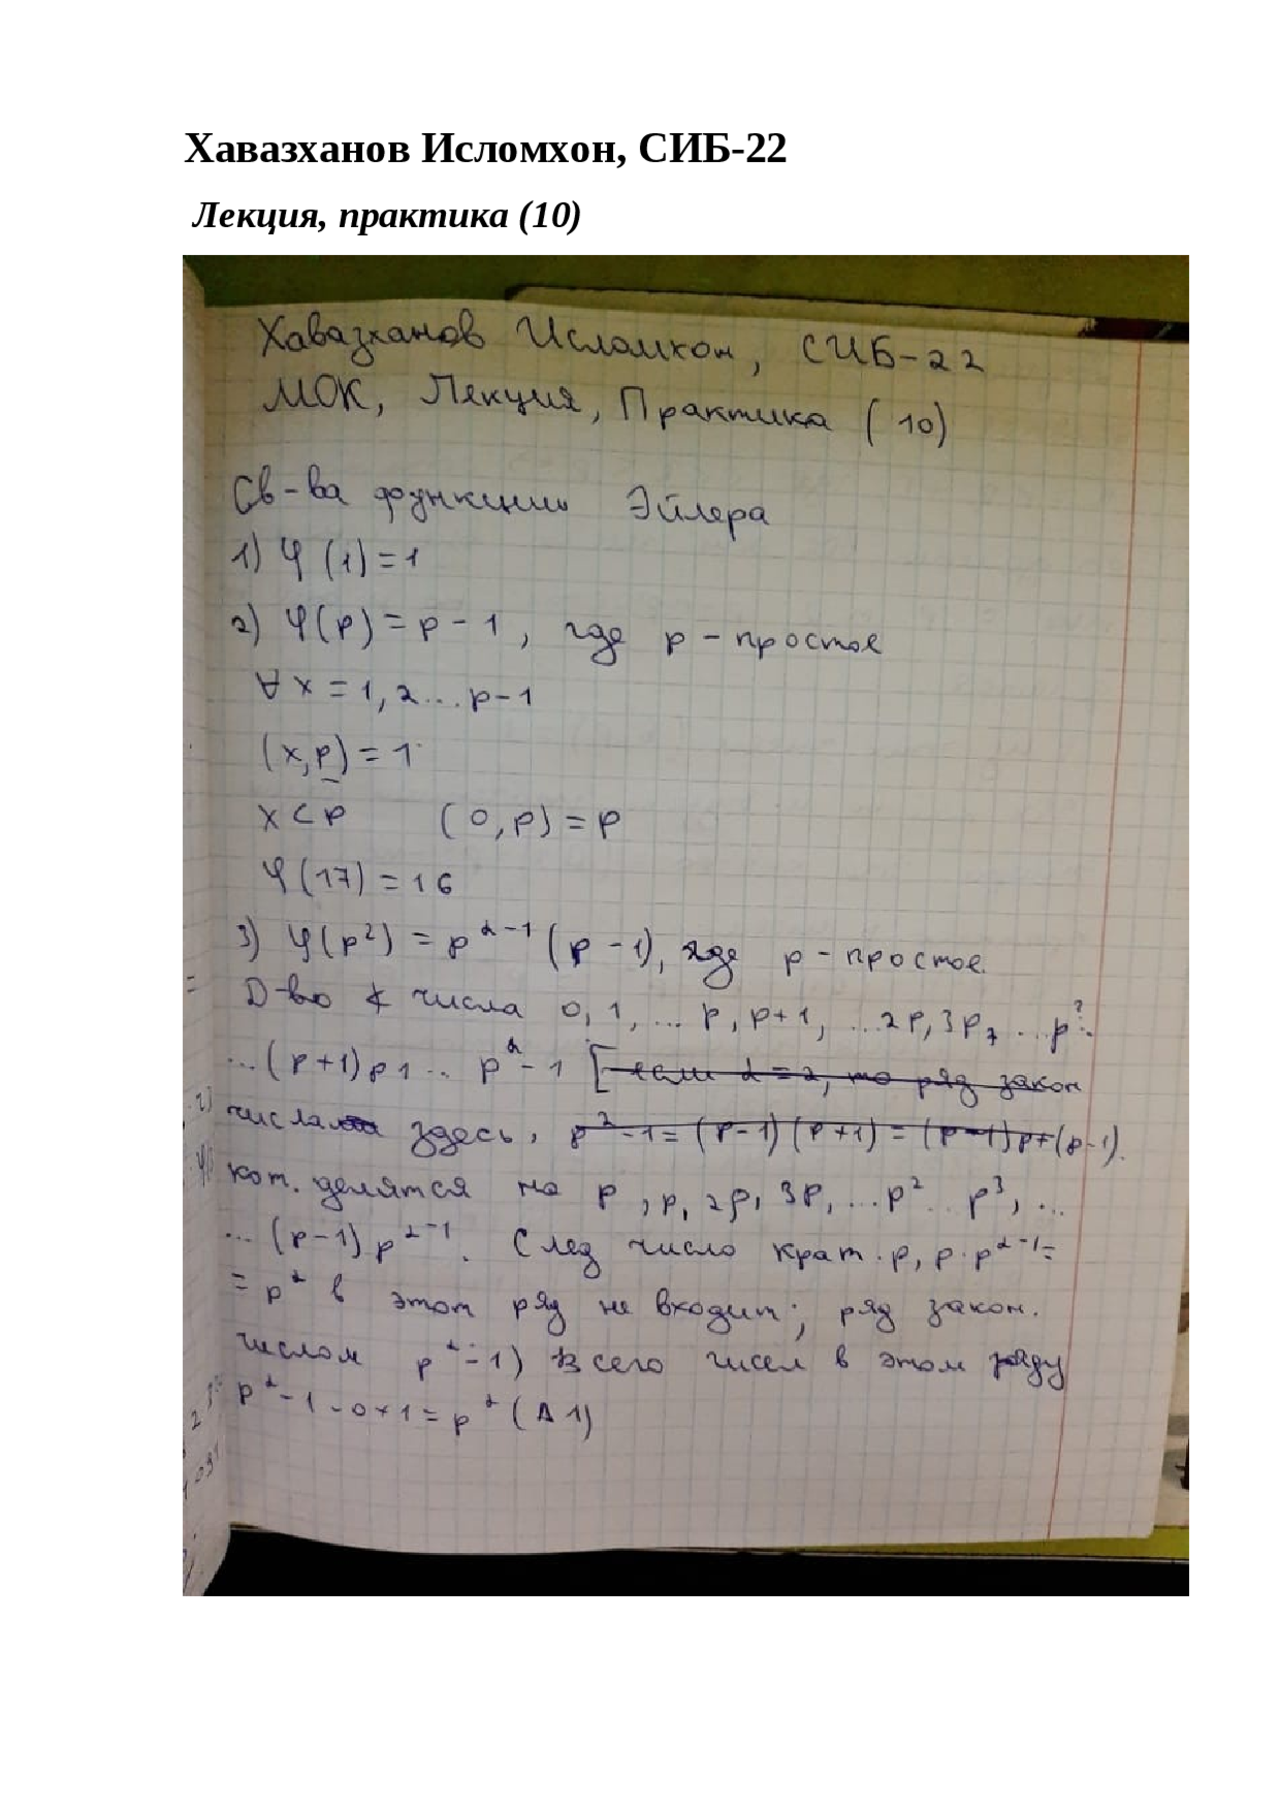 Хавазханов Исломхон, СИБ-22
Лекция, практика (10)
Хавазханов Исломхон, СИБ-22
МОК, Лекция, Практика (10)
Св-ва функции Эйлера
1) φ(1)=1
2) φ(p)=p-1, где p-простое
∀x=1,2...p-1
(x,p)=1
x<p (0,p)=p
φ(17)=16
3) φ(p²)=p^α-1(p-1), где p-простое.
D-во ∢ числа 0,1,...p,p+1,...2p,3p,...p²..
...(p+1)p1...p^α-1 [если α=2, то ряд закон
числа здесь, p²-1=(p-1)(p+1)=(p-1)p+(p-1).
кот. делятся на p, p, 2p, 3p,...p²..p³,...
...(p-1)p^α-1. След число крат.p, p·p^α-1=
=p^α в этот ряд не входит; ряд закон.
числом p^α-1) Всего чисел в этом ряду
p^α-1-0+1=p^α (Δ1)